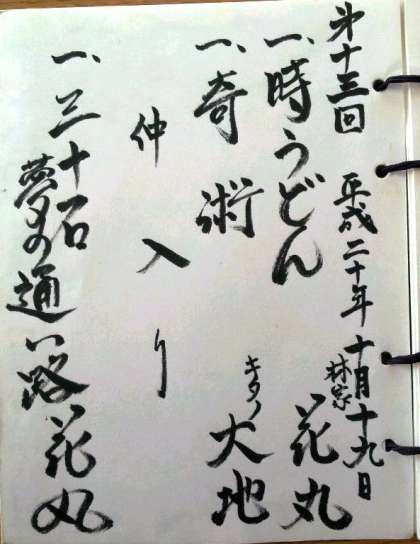 第十三回 平成二十年十月十九日
一、時うどん 林家 花丸
一、奇術 キタノ大地
仲入り
一、三十石
夢の通い路 花丸